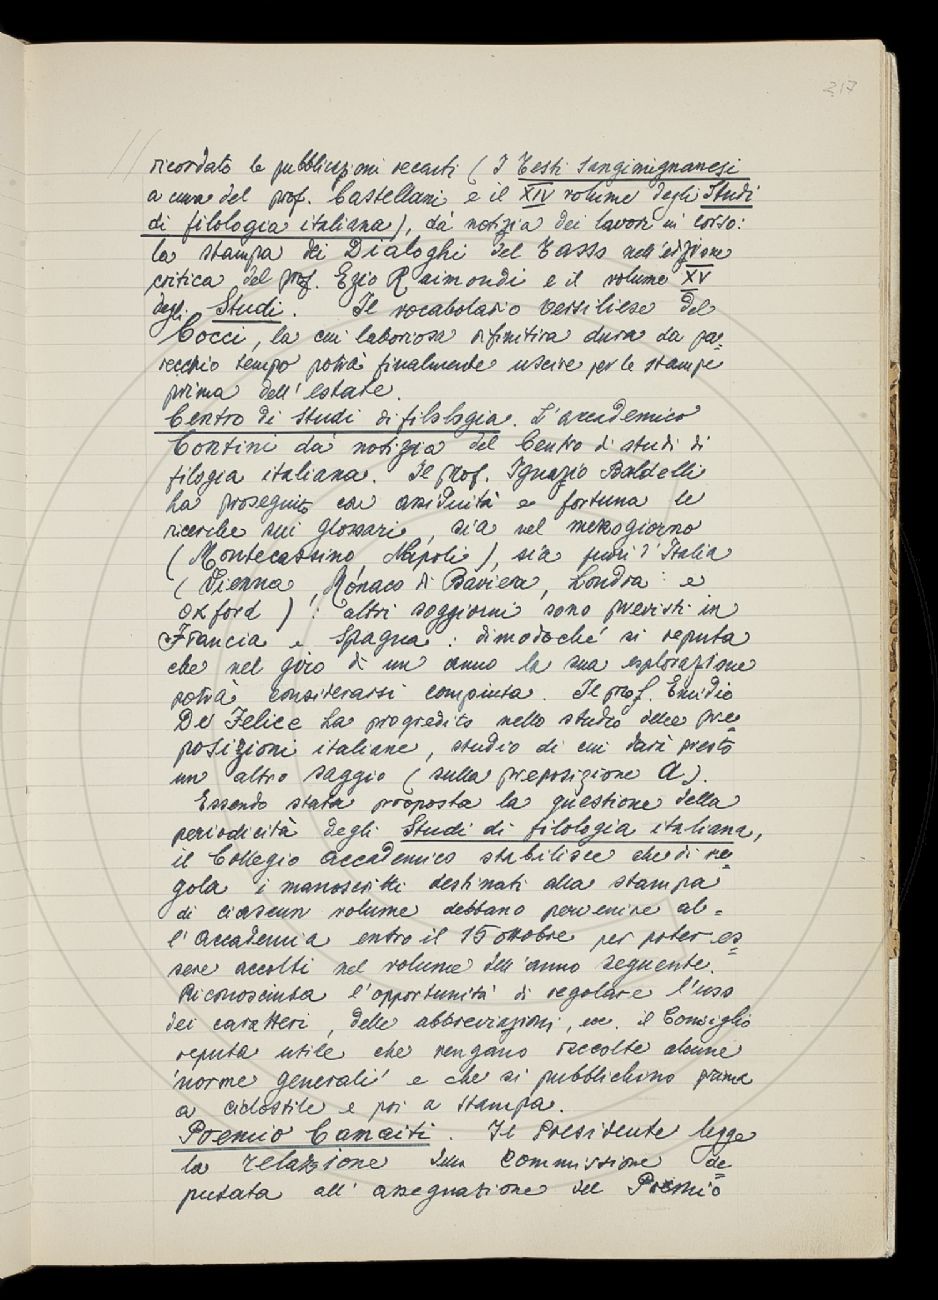 217
ricordato le pubblicazioni recenti ( I Testi sangimignanesi
a cura del prof. Castellani e il XIV volume degli Studi
di filologia italiana), dà notizia dei lavori in corso:
la stampa dei Dialoghi del Tasso nell'edizione
critica del prof. Ezio Raimondi e il volume XV
degli Studi. Il vocabolario versiliese del
Cocci, la cui laboriosa rifinitura dura da pa=
recchio tempo potrà finalmente uscire per le stampe
prima dell'estate.
Centro di Studi di filologia. L'accademico
Contini dà notizia del Centro di studi di
filogia italiana. Il prof. Ignazio Baldelli
ha proseguito con assiduità e fortuna le
ricerche sui glossari, sia nel mezzogiorno
(Montecassino, Napoli), sia fuori d'Italia
(Vienna, Mónaco di Baviera, Londra e
Oxford): altri soggiorni sono previsti in
Francia e Spagna: dimodoché si reputa
che nel giro di un anno la sua esplorazione
potrà considerarsi compiuta. Il prof. Emidio
De Felice ha progredito nello studio delle pre=
posizioni italiane, studio di cui darà presto
un altro saggio (sulla preposizione A).
Essendo stata proposta la questione della
periodicità degli Studi di filologia italiana,
il Collegio accademico stabilisce che di re=
gola i manoscritti destinati alla stampa
di ciascun volume debbano pervenire al=
l'Accademia entro il 15 ottobre per poter es=
sere accolti nel volume dell'anno seguente.
Riconosciuta l'opportunità di regolare l'uso
dei caratteri, delle abbreviazioni, ecc. il Consiglio
reputa utile che vengano raccolte alcune
'norme generali' e che si pubblichino prima
a ciclostile e poi a stampa.
Premio Canaiti. Il Presidente legge
la relazione della Commissione de=
putata all'assegnazione del Premio